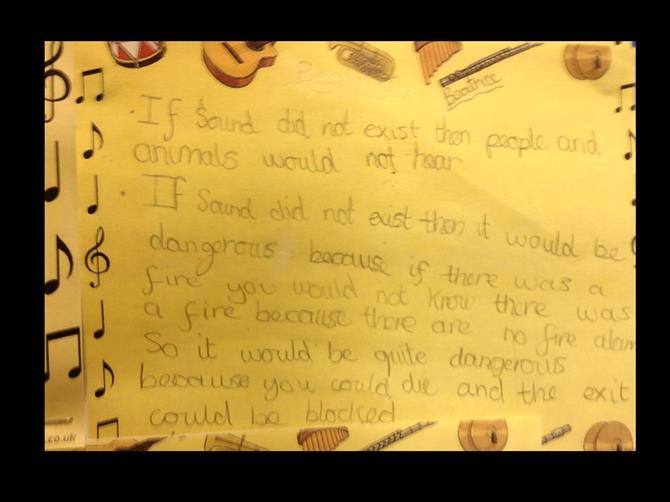 Beatrice
· If Sound did not exist then people and
animals would not hear.
· If Sound did not exist then it would be
dangerous because if there was a
fire you would not know there was
a fire because there are no fire alarm
So it would be quite dangerous
because you could die and the exit
could be blocked
.co.uk